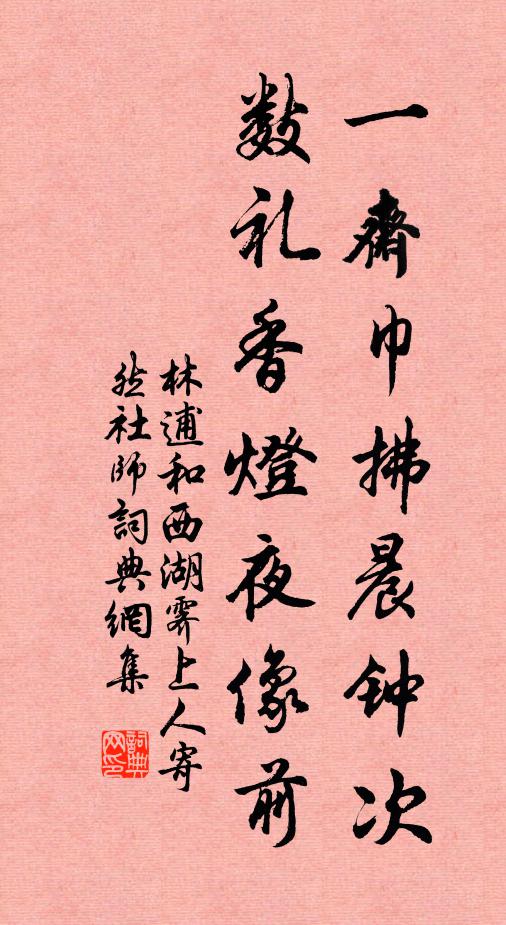 一齋巾拂晨钟次
数礼香燈夜像前
林逋和西湖霁上人寄
然社师詞典網集
詞典網印